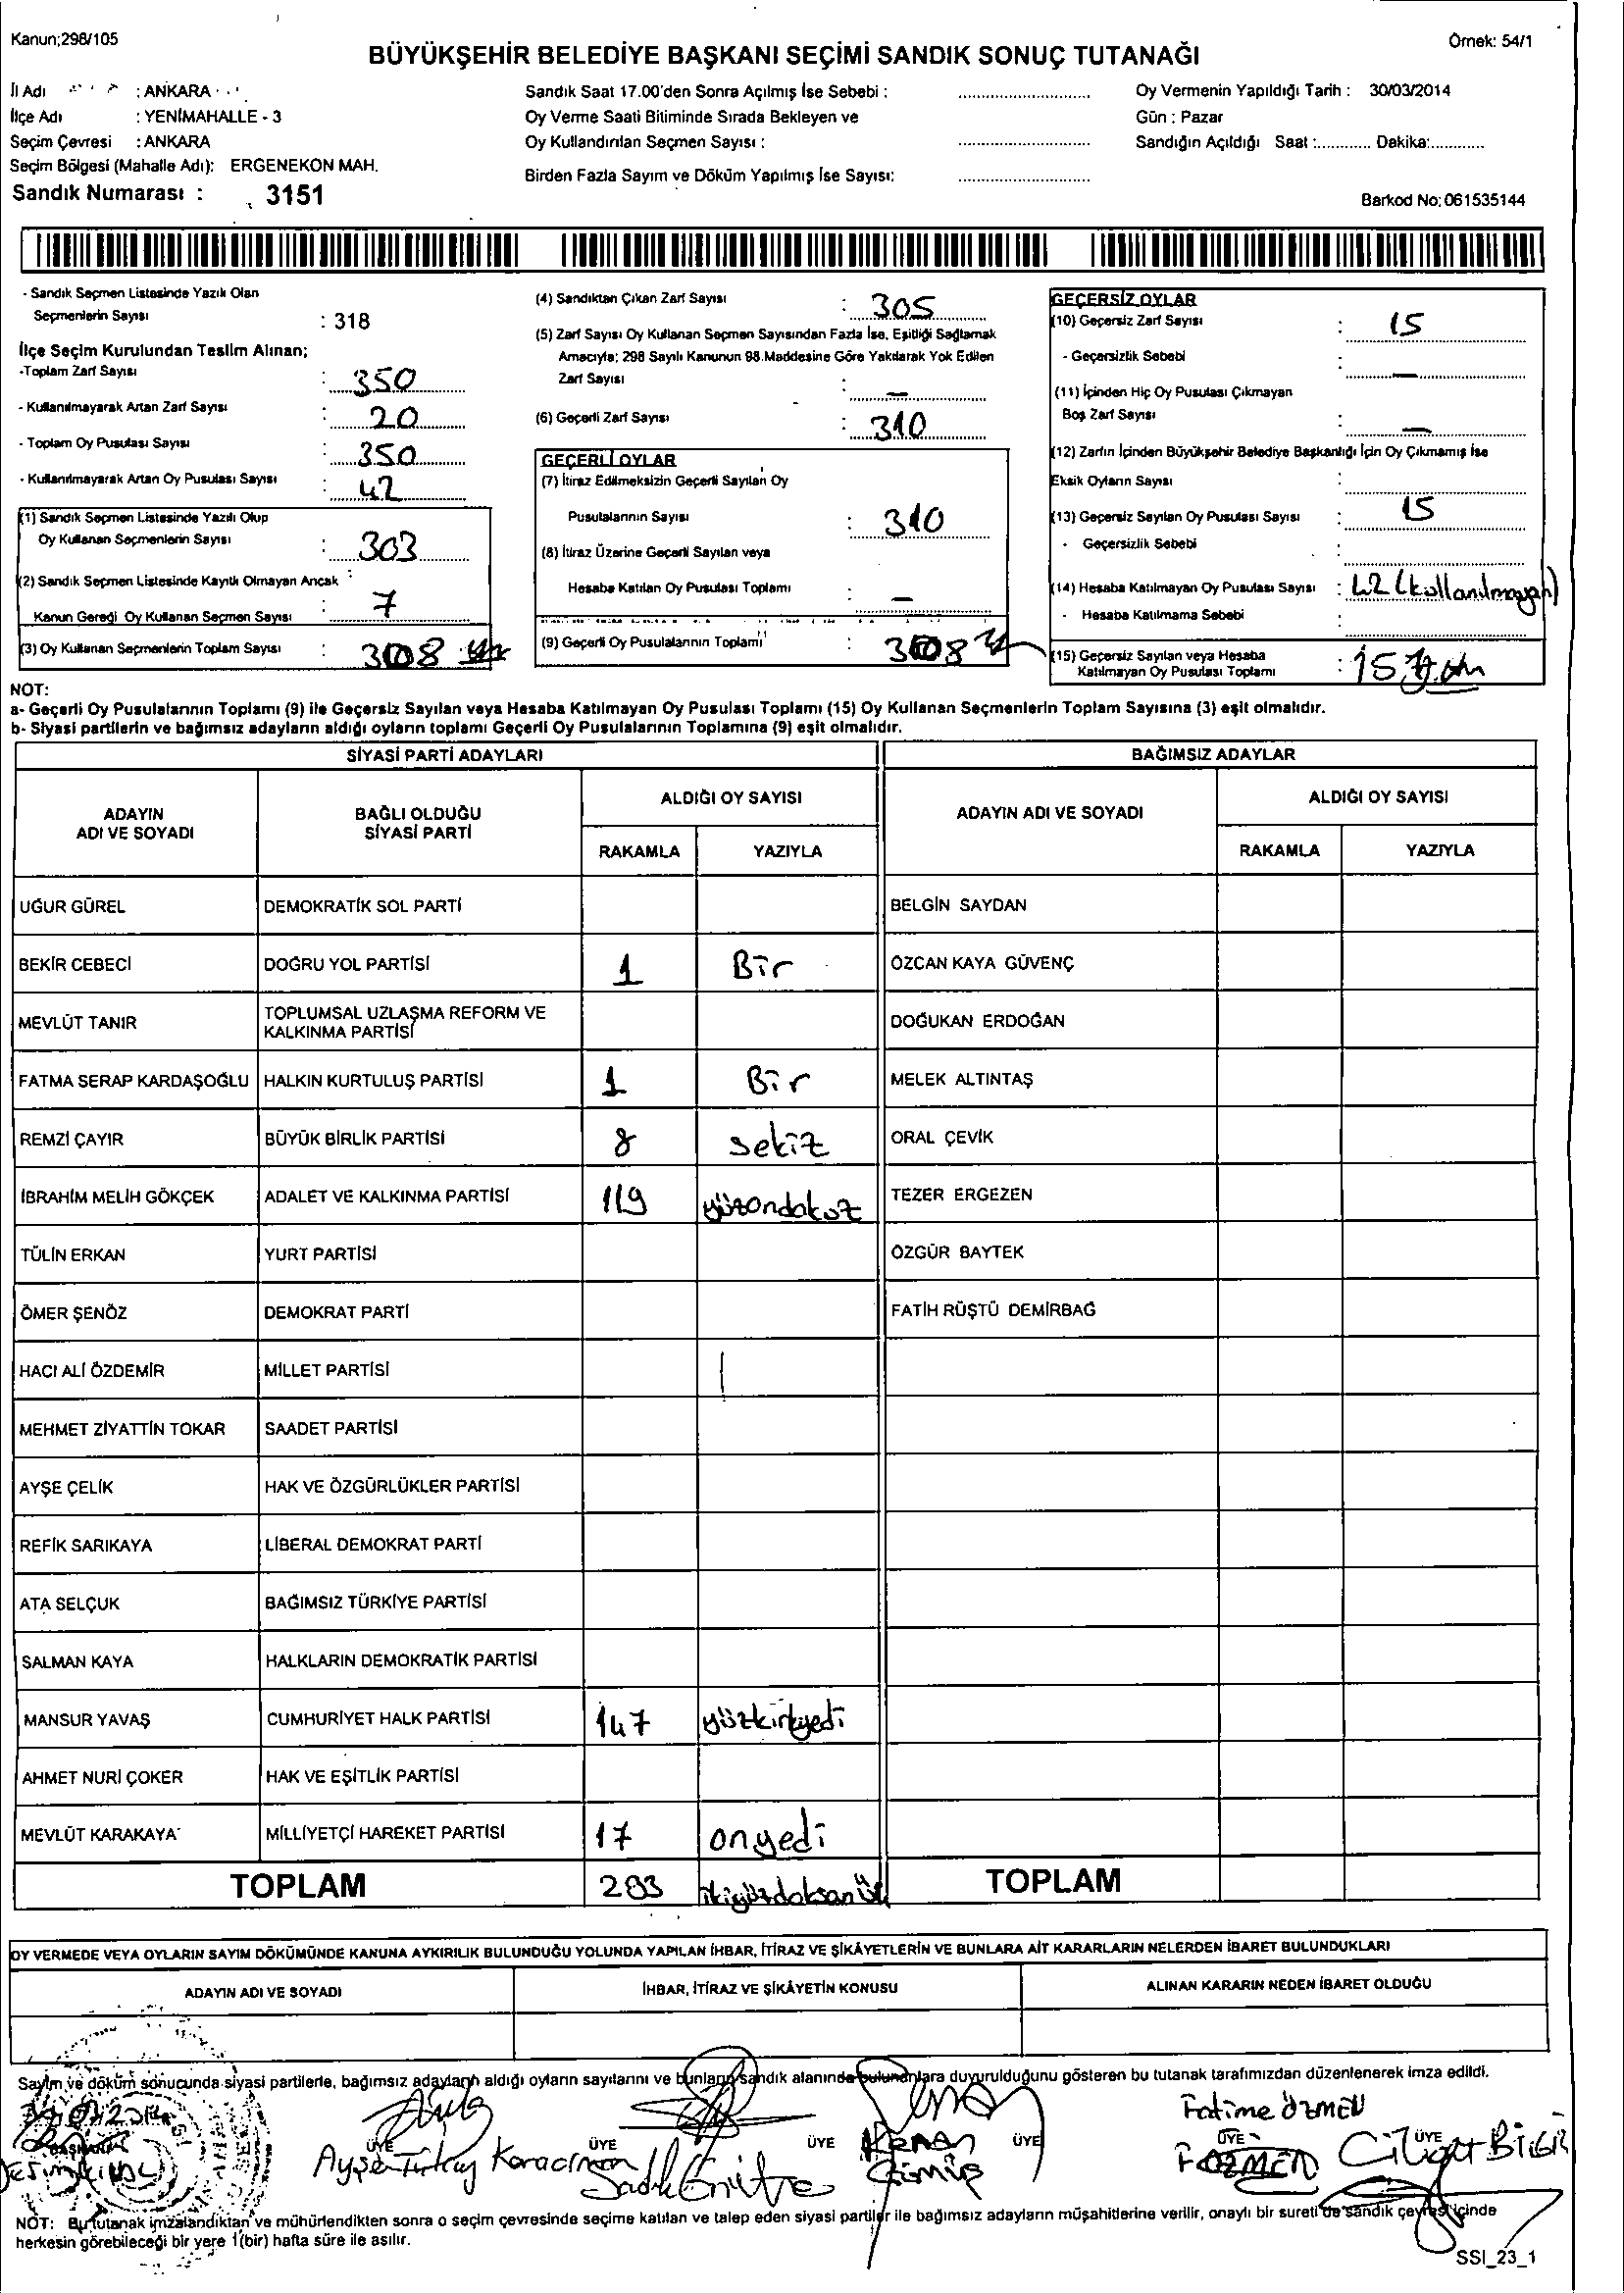 Kanun;298/105
Örnek: 54/1
BÜYÜKŞEHİR BELEDİYE BAŞKANI SEÇİMİ SANDIK SONUÇ TUTANAĞI
İl Adı : ANKARA
İlçe Adı : YENİMAHALLE - 3
Seçim Çevresi : ANKARA
Seçim Bölgesi (Mahalle Adı): ERGENEKON MAH.
Sandık Numarası : 3151
Sandık Saat 17.00'den Sonra Açılmış İse Sebebi : ..............................
Oy Verme Saati Bitiminde Sırada Bekleyen ve
Oy Kullandırılan Seçmen Sayısı : ..............................
Birden Fazla Sayım ve Döküm Yapılmış İse Sayısı: ..............................
Oy Vermenin Yapıldığı Tarih : 30/03/2014
Gün : Pazar
Sandığın Açıldığı Saat :............ Dakika:............
Barkod No: 061535144
- Sandık Seçmen Listesinde Yazılı Olan
Seçmenlerin Sayısı : 318
İlçe Seçim Kurulundan Teslim Alınan;
-Toplam Zarf Sayısı : 350
- Kullanılmayarak Artan Zarf Sayısı : 20
- Toplam Oy Pusulası Sayısı : 350
- Kullanılmayarak Artan Oy Pusulası Sayısı : 42
(1) Sandık Seçmen Listesinde Yazılı Olup
Oy Kullanan Seçmenlerin Sayısı : 303
(2) Sandık Seçmen Listesinde Kayıtlı Olmayan Ancak
Kanun Gereği Oy Kullanan Seçmen Sayısı : 7
(3) Oy Kullanan Seçmenlerin Toplam Sayısı : 308
(4) Sandıktan Çıkan Zarf Sayısı : 305
(5) Zarf Sayısı Oy Kullanan Seçmen Sayısından Fazla İse, Eşitliği Sağlamak
Amacıyla; 298 Sayılı Kanunun 98.Maddesine Göre Yakılarak Yok Edilen
Zarf Sayısı : —
(6) Geçerli Zarf Sayısı : 310
GEÇERLİ OYLAR
(7) İtiraz Edilmeksizin Geçerli Sayılan Oy
Pusulalarının Sayısı : 310
(8) İtiraz Üzerine Geçerli Sayılan veya
Hesaba Katılan Oy Pusulası Toplamı : —
(9) Geçerli Oy Pusulalarının Toplamı : 308
GEÇERSİZ OYLAR
(10) Geçersiz Zarf Sayısı : 15
- Geçersizlik Sebebi : —
(11) İçinden Hiç Oy Pusulası Çıkmayan
Boş Zarf Sayısı : —
(12) Zarfın İçinden Büyükşehir Belediye Başkanlığı İçin Oy Çıkmamış İse
Eksik Oyların Sayısı :
(13) Geçersiz Sayılan Oy Pusulası Sayısı : 15
- Geçersizlik Sebebi :
(14) Hesaba Katılmayan Oy Pusulası Sayısı : 42 (kullanılmayan)
- Hesaba Katılmama Sebebi :
(15) Geçersiz Sayılan veya Hesaba
Katılmayan Oy Pusulası Toplamı : 15
NOT:
a- Geçerli Oy Pusulalarının Toplamı (9) ile Geçersiz Sayılan veya Hesaba Katılmayan Oy Pusulası Toplamı (15) Oy Kullanan Seçmenlerin Toplam Sayısına (3) eşit olmalıdır.
b- Siyasi partilerin ve bağımsız adayların aldığı oyların toplamı Geçerli Oy Pusulalarının Toplamına (9) eşit olmalıdır.
SİYASİ PARTİ ADAYLARI
BAĞIMSIZ ADAYLAR
ADAYIN ADI VE SOYADI
BAĞLI OLDUĞU SİYASİ PARTİ
ALDIĞI OY SAYISI
RAKAMLA YAZIYLA
ADAYIN ADI VE SOYADI
ALDIĞI OY SAYISI
RAKAMLA YAZIYLA
UĞUR GÜREL DEMOKRATİK SOL PARTİ BELGİN SAYDAN
BEKİR CEBECİ DOĞRU YOL PARTİSİ 1 Bir ÖZCAN KAYA GÜVENÇ
MEVLÜT TANIR TOPLUMSAL UZLAŞMA REFORM VE KALKINMA PARTİSİ DOĞUKAN ERDOĞAN
FATMA SERAP KARDAŞOĞLU HALKIN KURTULUŞ PARTİSİ 1 Bir MELEK ALTINTAŞ
REMZİ ÇAYIR BÜYÜK BİRLİK PARTİSİ 8 sekiz ORAL ÇEVİK
İBRAHİM MELİH GÖKÇEK ADALET VE KALKINMA PARTİSİ 119 yüzondokuz TEZER ERGEZEN
TÜLİN ERKAN YURT PARTİSİ ÖZGÜR BAYTEK
ÖMER ŞENÖZ DEMOKRAT PARTİ FATİH RÜŞTÜ DEMİRBAĞ
HACI ALİ ÖZDEMİR MİLLET PARTİSİ
MEHMET ZİYATTİN TOKAR SAADET PARTİSİ
AYŞE ÇELİK HAK VE ÖZGÜRLÜKLER PARTİSİ
REFİK SARIKAYA LİBERAL DEMOKRAT PARTİ
ATA SELÇUK BAĞIMSIZ TÜRKİYE PARTİSİ
SALMAN KAYA HALKLARIN DEMOKRATİK PARTİSİ
MANSUR YAVAŞ CUMHURİYET HALK PARTİSİ 147 yüzkırkyedi
AHMET NURİ ÇOKER HAK VE EŞİTLİK PARTİSİ
MEVLÜT KARAKAYA MİLLİYETÇİ HAREKET PARTİSİ 17 onyedi
TOPLAM 293 ikiyüzdoksanüç TOPLAM
OY VERMEDE VEYA OYLARIN SAYIM DÖKÜMÜNDE KANUNA AYKIRILIK BULUNDUĞU YOLUNDA YAPILAN İHBAR, İTİRAZ VE ŞİKÂYETLERİN VE BUNLARA AİT KARARLARIN NELERDEN İBARET BULUNDUKLARI
ADAYIN ADI VE SOYADI İHBAR, İTİRAZ VE ŞİKÂYETİN KONUSU ALINAN KARARIN NEDEN İBARET OLDUĞU
Sayım ve döküm sonucunda siyasi partilerle, bağımsız adayların aldığı oyların sayılarını ve bunların sandık alanında bulunanlara duyurulduğunu gösteren bu tutanak tarafımızdan düzenlenerek imza edildi.
Fatime ÖZMEN
BAŞKAN ÜYE ÜYE ÜYE ÜYE ÜYE ÜYE
Ayşe Türkay Karaciman
Kenan
F. ÖZMEN
NOT: Bu tutanak imzalandıktan ve mühürlendikten sonra o seçim çevresinde seçime katılan ve talep eden siyasi partiler ile bağımsız adayların müşahitlerine verilir, onaylı bir sureti de sandık çevresi içinde
herkesin görebileceği bir yere 1(bir) hafta süre ile asılır.
SSI_23_1